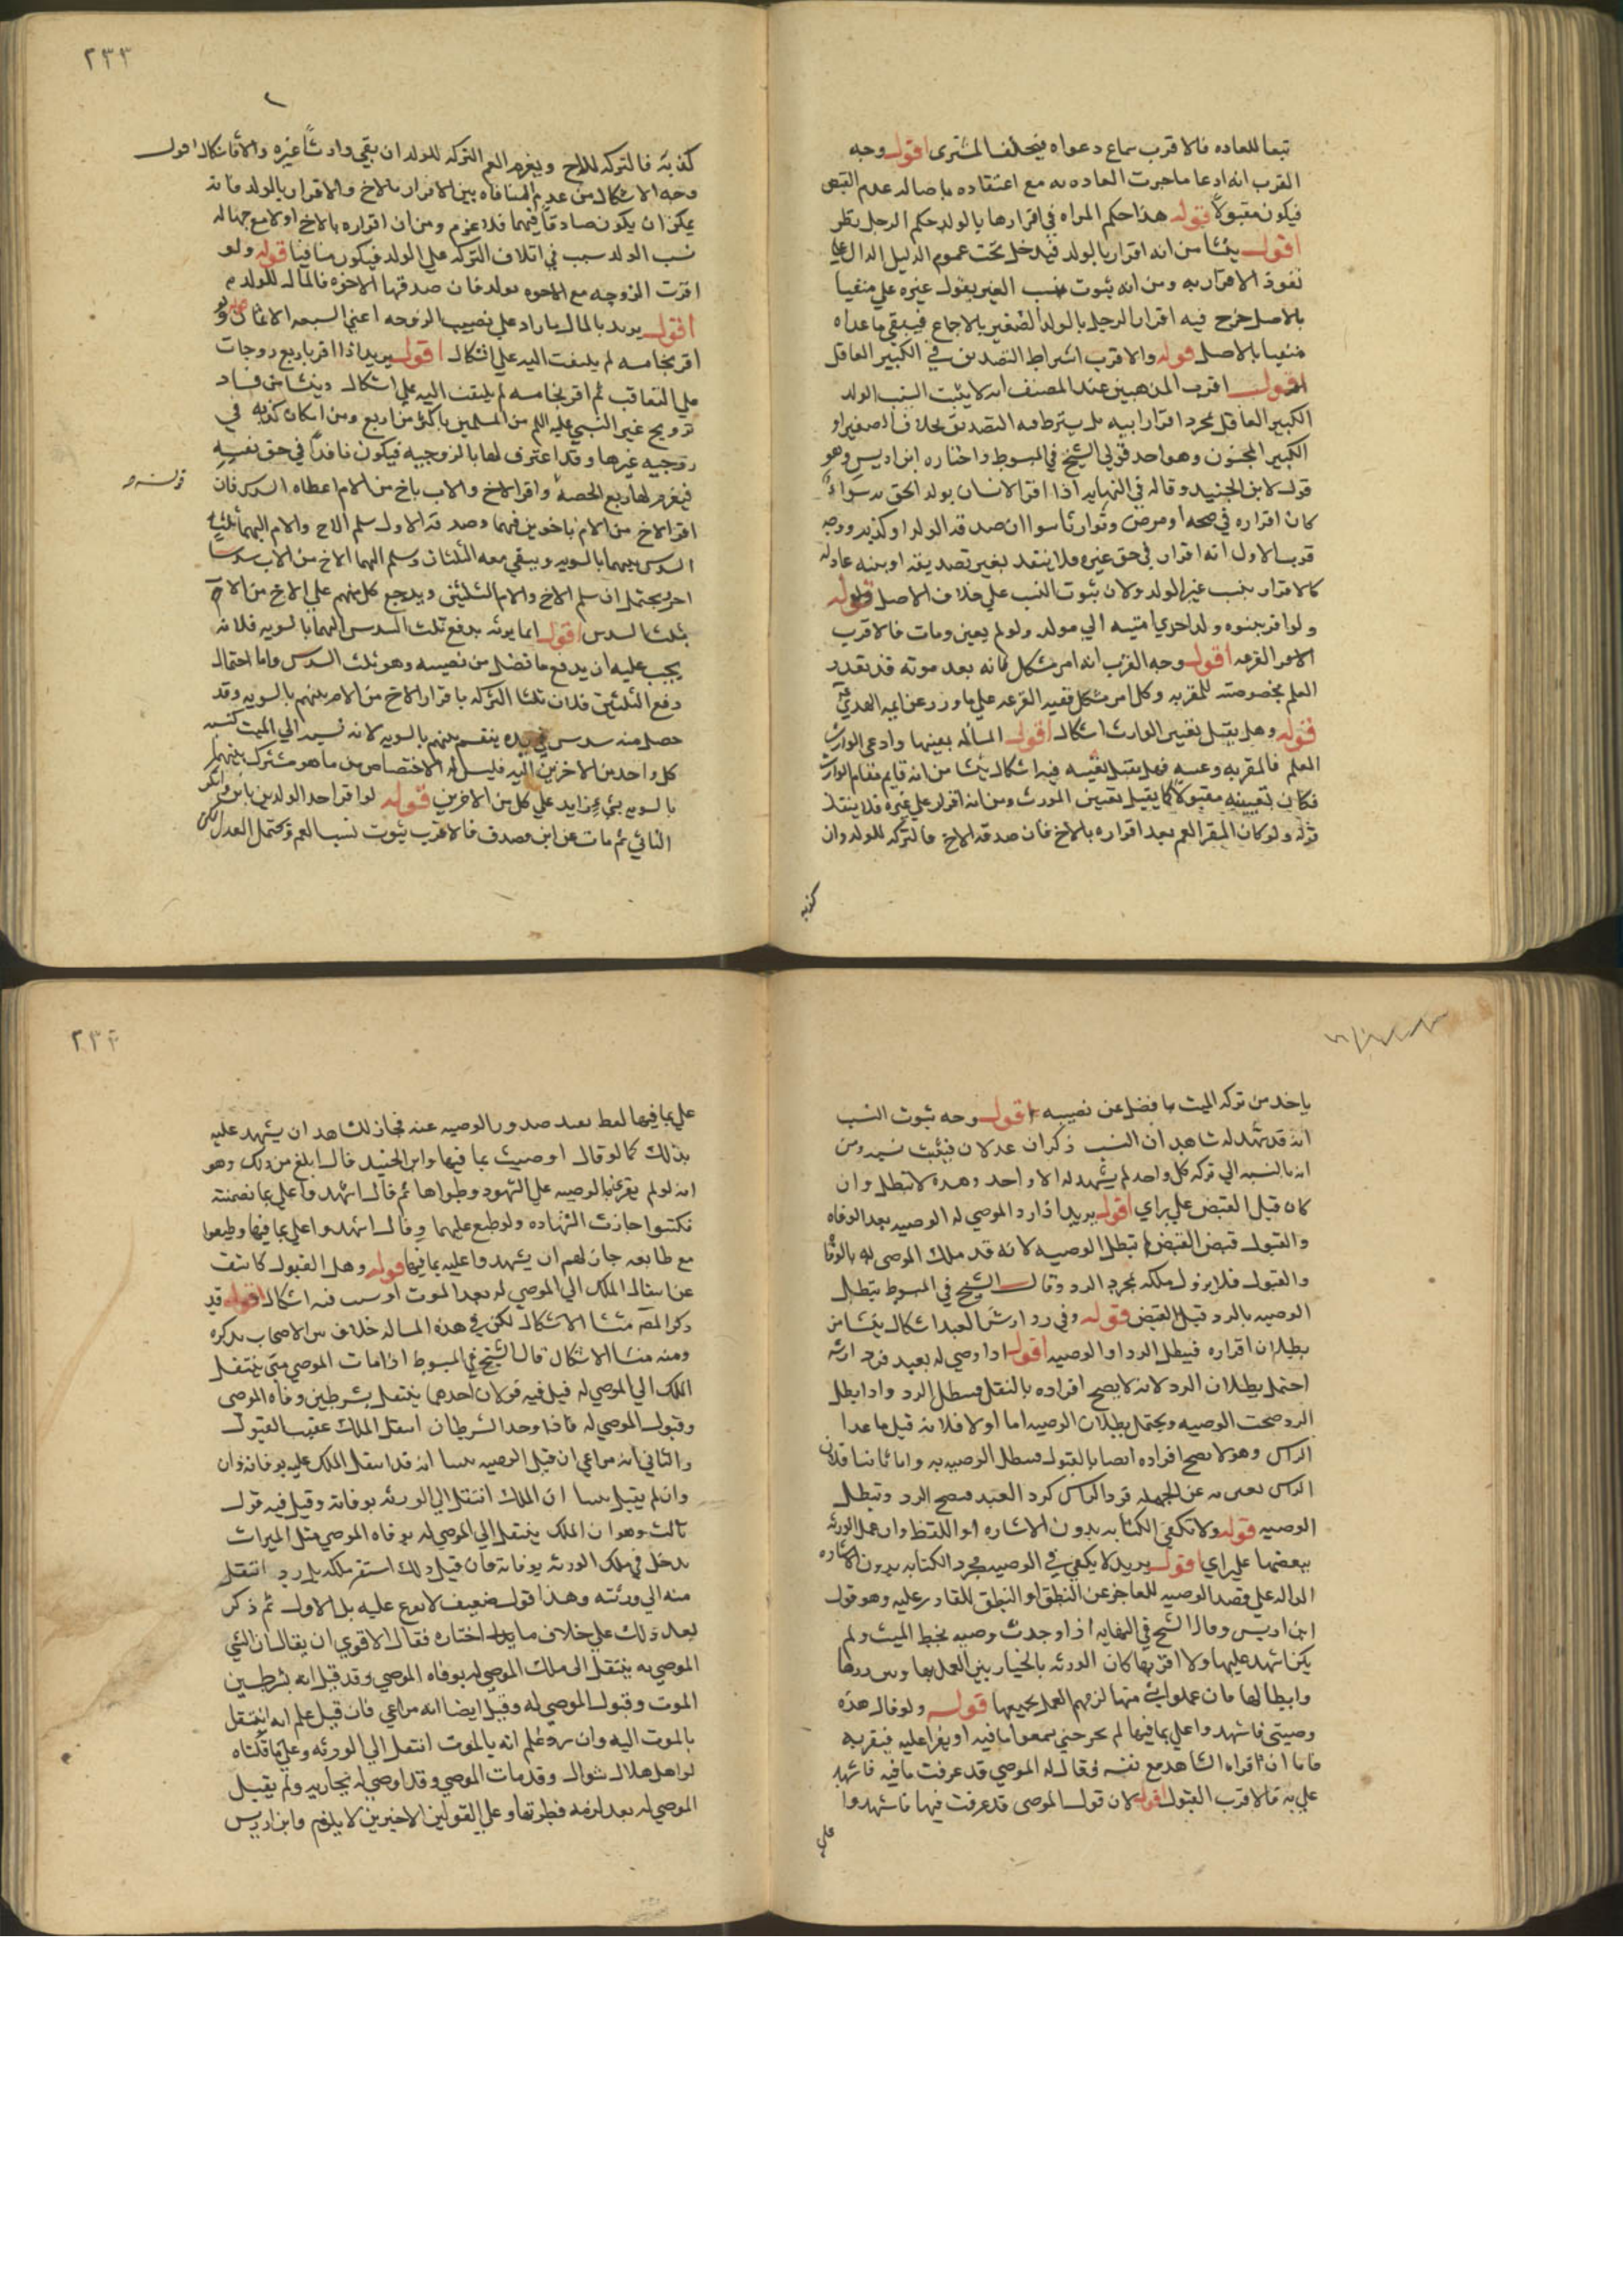 تبعا للعاده فالاقرب سماع دعواه فيحلف المشترى اقول وجه
القرب انه ادعا ما جرت العاده به مع اعتقاده باصاله عدم القبض
فيكون مقبولا قوله هذا حكم المراه في اقرارها بالولد حكم الرجل نظر
اقول ينشا من انه اقرار بالولد فيدخل تحت عموم الدليل الدال على
نفوذ الاقرار به ومن انه ثبوت نسب الغير بقول غيره على منفيا
بالاصل خرج فيه اقرار الرجل بالولد الصغير بالاجماع فيبقى ما عداه
منفيا بالاصل قوله والاقرب اشتراط التصديق في الكبير العاقل
اقول اقرب المذهبين عند المصنف انه لا يثبت النسب الولد
الكبير العاقل بمجرد اقرار ابيه بل يشترط فيه التصديق بخلاف الصغير او
الكبير المجنون وهو احد قولي الشيخ في المبسوط واختاره ابن ادريس وهو
قول لابن الجنيد وقال في النهايه اذا اقر الانسان بولد الحق به سواء
كان اقراره في صحه او مرض وتوارثا سوا ان صدقه الولد او كذبه ووجه
قرب الاول انه اقرار في حق غيره فلا ينفذ بغير تصديقه او بينه عادله
كالاقرار بنسب غير الولد ولان ثبوت النسب على خلاف الاصل قوله
ولو اقر ببنوه ولد احدى امتيه الى مولد ولو لم يعين ومات فالاقرب
الامر القرعه اقول وجه القرب انه امر مشكل فانه بعد موته قد تعذر
العلم بخصوصيته للمقر به وكل امر مشكل ففيه القرعه على ما ورد عن ايمه الهدى
قوله وهل يقبل تعيين الوارث اشكال اقول المساله بعينها وادعى الوارث
العلم فالمقر به وعينه فهل يقبل تعيينه فيه اشكال ينشا من انه قايم مقام الوارث
فكان تعيينه مقبولا كما يقبل تعيين المورث ومن انه اقرار على غيره فلا ينفذ
قوله ولو كان المقر العم بعد اقراره بالاخ فان صدقه الاخ فالتركه للولد وان
كذبه
٢٣٣
كذبه فالتركه للاخ ويغرم العم التركه للولد ان بقي وارثا غيره والا فاشكال اقول
وجه الاشكال من عدم المنافاه بين الاقرار بالاخ والاقرار بالولد فانه
يمكن ان يكون صادقا فيهما فلا غرم ومن ان اقراره بالاخ اولا مع جهاله
نسب الولد سبب في اتلاف التركه على الولد فيكون منافيا قوله ولو
اقرت الزوجه مع الاخوه بولد فان صدقها الاخوه فالمال للولد
اقول يريد بالمال ما زاد على نصيب الزوجه اعني السبعه الاثمان
اقر بخامسه لم يلتفت اليه على اشكال اقول يريد اذا اقر باربع زوجات
على التعاقب ثم اقر بخامسه لم يلتفت اليه على اشكال وينشا من فساد
تزويج غير النبي عليه السلم من المسلمين باكثر من اربع ومن امكان كذبه في
زوجيه غيرها وقد اعترف لها بالزوجيه فيكون نافذا في حق نفسه
فيغرم لها ربع الحصه واقر الاخ والاب باخ من الام اعطاه السدس فان
اقر الاخ من الام باخوين فيهما وصدقه الاول سلم الاخ والام اليهما ثلث
السدس بينهما بالسويه ويبقى معه الثلثان وسلم اليهما الاخ من الاب سدسا
اخر ويحتمل ان سلم الاخ والام الثلثين ويرجع كل منهم على الاخ من الاب
بثلث السدس اقول انما يرثه بدفع ثلث السدس اليهما بالسويه فلانه
يجب عليه ان يدفع ما فضل من نصيبه وهو ثلث السدس واما احتمال
دفع الثلثين فلان ثلث التركه باقرار الاخ من الام بينهم بالسويه وقد
حصل منه سدس في يده ينقسم بينهم بالسويه لانه نسبه الى الميت كنسبه
كل واحد من الاخرين اليه فليس له الاختصاص من ما هو مشترك بينهم
بالسويه بشي زايد على كل من الاخرين قوله لو اقر احد الولدين بابن وانكر
الثاني ثم مات عن ابن مصدق فالاقرب ثبوت نسب العم ويحتمل العدل
ياخذ من تركه الميت ما فضل عن نصيبه اقول وجه ثبوت النسب
انه قد شهد له شاهدان النسب ذكران عدلان فيثبت نسبه ومن
انه بالنسبه الى تركه كل واحد لم يشهد له الا واحد وهذه لا تبطل وان
كان قبل القبض على راي اقول يريد اذا رد الموصى له الوصيه بعد الوفاه
والقبول قبض القبض لم تبطل الوصيه لانه قد ملك الموصى له بالوفاه
والقبول فلا يزول ملكه بمجرد الرد وقال الشيخ في المبسوط يبطل
الوصيه بالرد قبل القبض قوله وفي رد ارش العبد اشكال ينشا من
بطلان اقراره فيبطل الرد او الوصيه اقول اذا اوصى له بعبد فرد ارثه
احتمل بطلان الرد لانه لا يصح افراده بالنقل فبطل الرد واذا بطل
الرد صحت الوصيه ويحتمل بطلان الوصيه اما اولا فلانه قبل ما عدا
الراس وهو لا يصح افراده ايضا بالقبول فبطل الوصيه به واما ثانيا فلان
الراس يعبر به عن الجمله فرد الراس كرد العبد فيصح الرد وتبطل
الوصيه قوله ولا تكفي الكتابه بدون الاشاره او اللفظ وان عمل الورثه
ببعضها على راي اقول يريد لا يكفي في الوصيه مجرد الكتابه بدون الاشاره
الداله على قصد الوصيه للعاجز عن النطق او النطق للقادر عليه وهو قول
ابن ادريس وقال الشيخ في النهايه اذا وجدت وصيه بخط الميت ولم
يكن اشهد عليها ولا اقر بها كان الورثه بالخيار بين العمل بها وبين ردها
وابطالها فان عملوا بشي منها لزمهم العمل بجميعها قوله ولو قال هذه
وصيتي فاشهدوا علي بما فيها لم يجز حتى يسمعوا ما فيه او يقرا عليه فيقر به
فاما ان اقراه الشاهد مع نفسه فقال له الموصي قد عرفت ما فيه فاشهد
علي به فالاقرب القبول اقول لان قول الموصي قد عرفت فيها فاشهدوا
علي
٢٣٤
علي بما فيها لفظ بعد صدور الوصيه عنه فجاز للشاهد ان يشهد عليه
بذلك كما لو قال اوصيت بما فيها وابن الجنيد قال ابلغ من ذلك وهو
انه لو لم يقرا الوصيه على الشهود وطواها ثم قال اشهدوا علي بما تضمنته
فكتبوا جازت الشهاده ولو طبع عليها وقال اشهدوا علي بما فيها وطبعوا
مع طابعه جاز لهم ان يشهدوا عليه بما فيها قوله وهل القبول كاشف
عن انتقال الملك الى الموصى له بعد الموت او سبب فيه اشكال اقول قد
ذكر المص منشا الاشكال لكن في هذه المساله خلاف بين الاصحاب نذكره
ومنه منشا الاشكال قال الشيخ في المبسوط اذا مات الموصي متى ينتقل
الملك الى الموصى له قيل فيه قولان احدهما ينتقل بشرطين وفاه الموصي
وقبول الموصى له فاذا وجد الشرطان انتقل الملك عقيب القبول
والثاني انه مراعى ان قبل الوصيه تبينا انه قد انتقل الملك عليه بوفاته وان
وان لم يقبل تبينا ان الملك انتقل الى الورثه بوفاته وقيل فيه قول
ثالث وهو ان الملك ينتقل الى الموصى له بوفاه الموصي مثل الميراث
يدخل في ملك الورثه بوفاته فان قبل ذلك استقر ملكه وان رد انتقل
منه الى ورثته وهذا قول ضعيف لا يعول عليه بل الاول ثم ذكر
بعد ذلك على خلاف ما اختاره فقال الاقوى ان يقال ان الشي
الموصى به ينتقل الى ملك الموصى له بوفاه الموصي وقد قيل انه بشرطين
الموت وقبول الموصى له وقيل ايضا انه مراعى فان قبل علم انه انتقل
بالموت اليه وان رد علم انه بالموت انتقل الى الورثه وعلى ما قلناه
لو اهل هلال شوال وقد مات الموصي وقد اوصى له بجاريه ولم يقبل
الموصى له بعد لزمه فطرتها وعلى القولين الاخيرين لا يلزم وابن ادريس